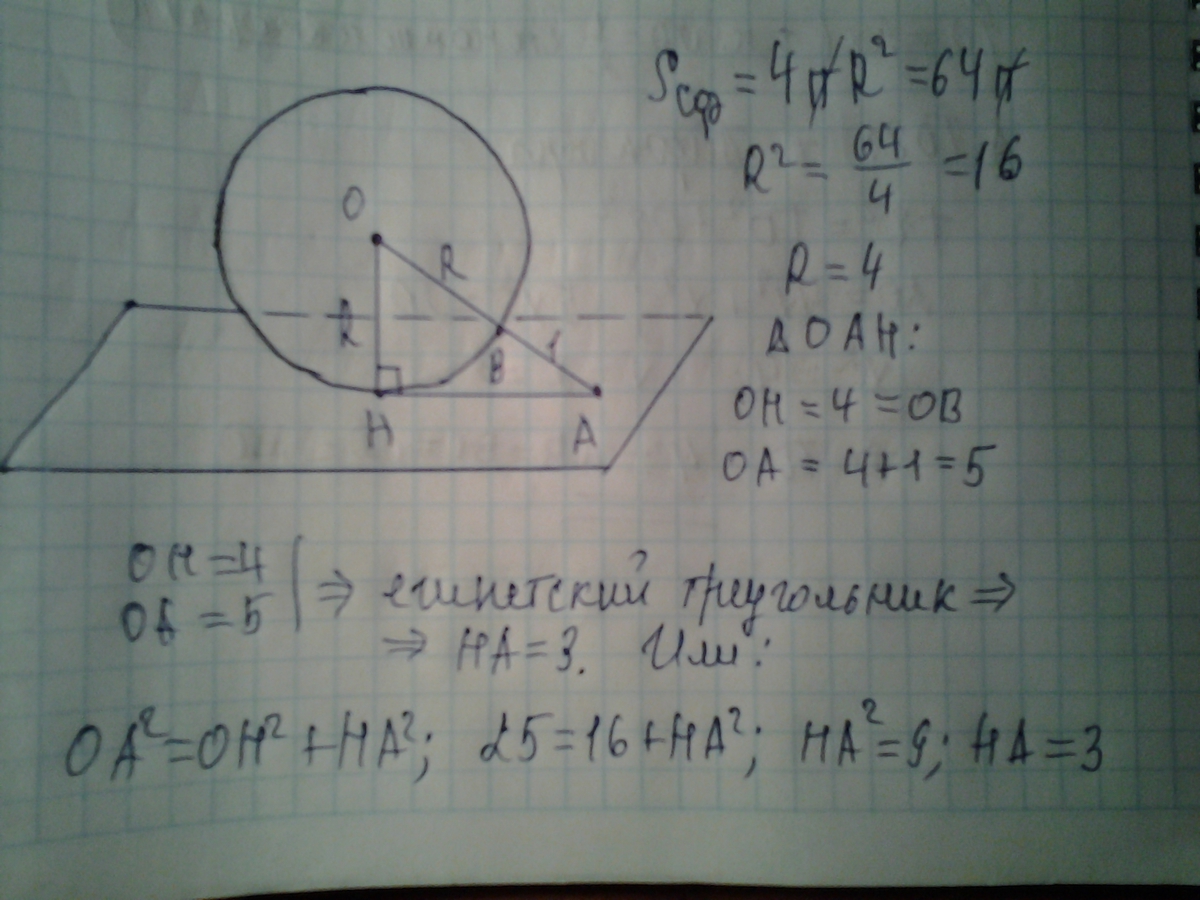 Sсф = 4πR² = 64π
R² = 64/4 = 16
R = 4
Δ OAH:
OH = 4 = OB
OA = 4+1 = 5
O
R
R
1
B
H
A
OH = 4
OA = 5
⇒ египетский треугольник ⇒
⇒ HA = 3. Или:
OA² = OH² + HA²; 25 = 16 + HA²; HA² = 9; HA = 3